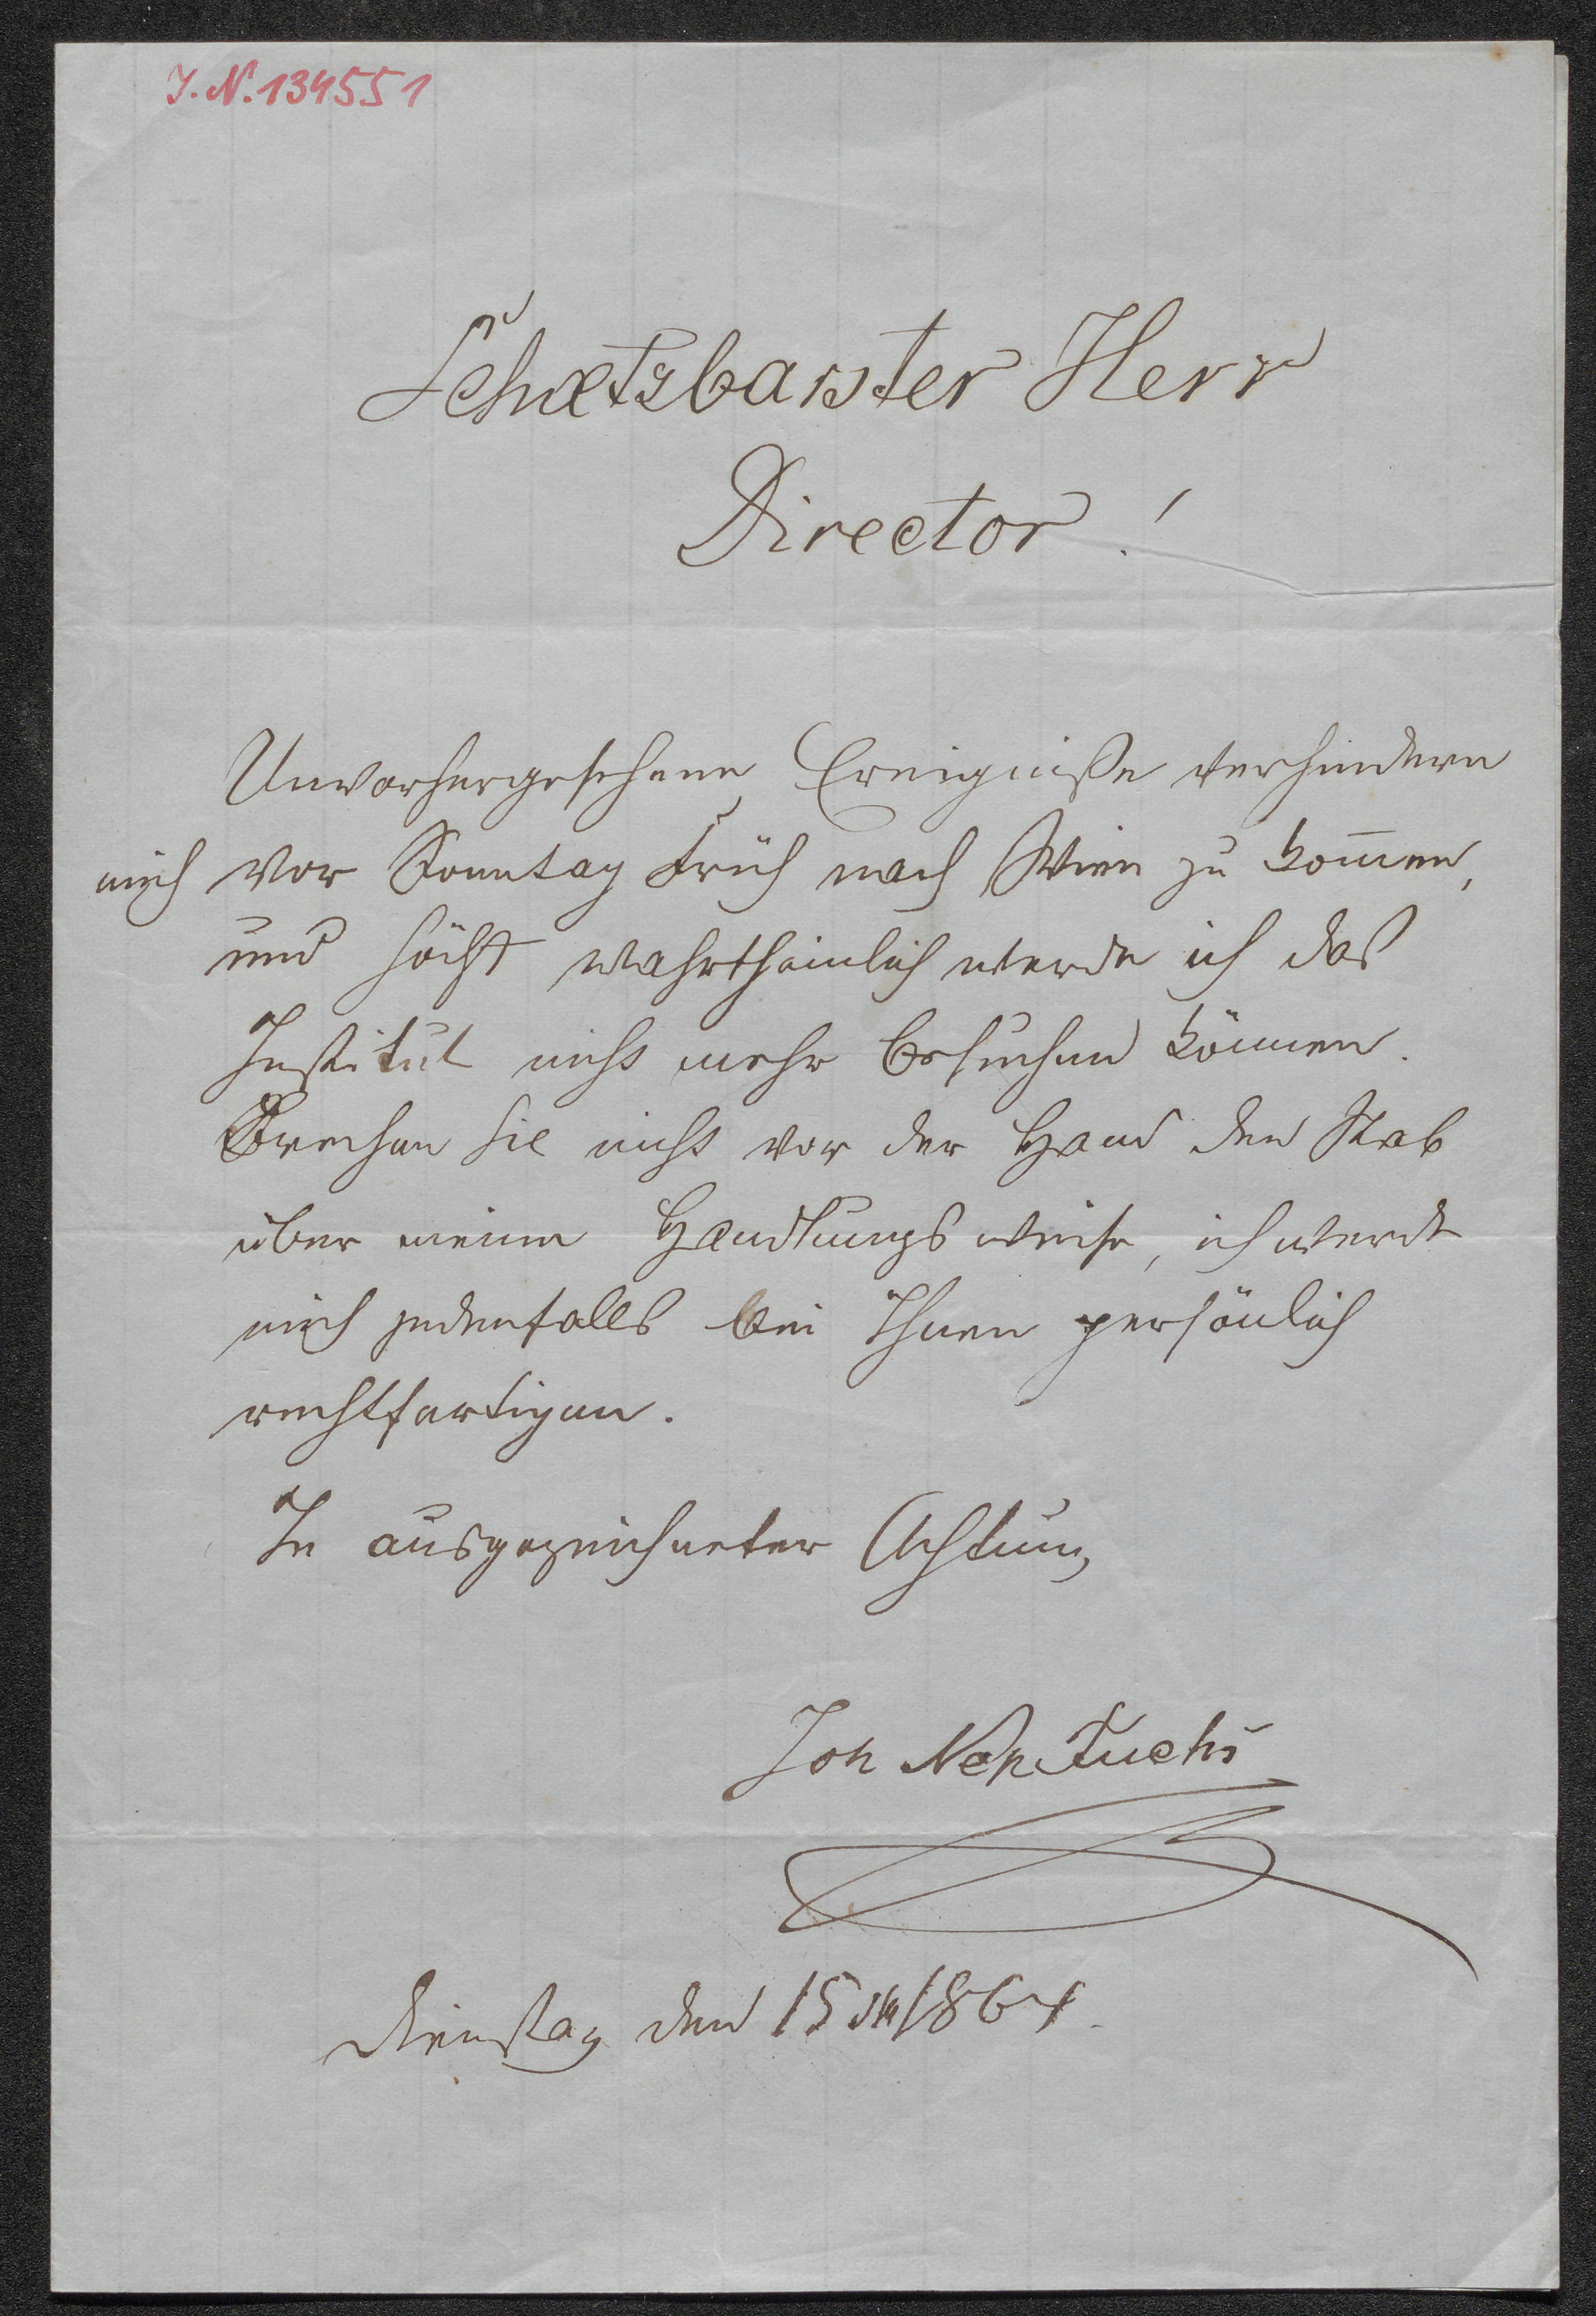 I. N. 134551
Schætzbarster Herr
Director!
Unvorhergesehene Ereigniße verhindern
mich vor Sonntag Früh nach Wien zu kom̅en,
und höchst wahrscheinlich werde ich das
Institut nicht mehr besuchen können.
Brechen Sie nicht vor der Hand den Stab
über meine Handlungsweise, ich werde
mich jedenfalls bei Ihnen persönlich
rechtfertigen.
In ausgezeichneter Achtung
Joh Nep Fuchs
Dienstag den 15 1864.